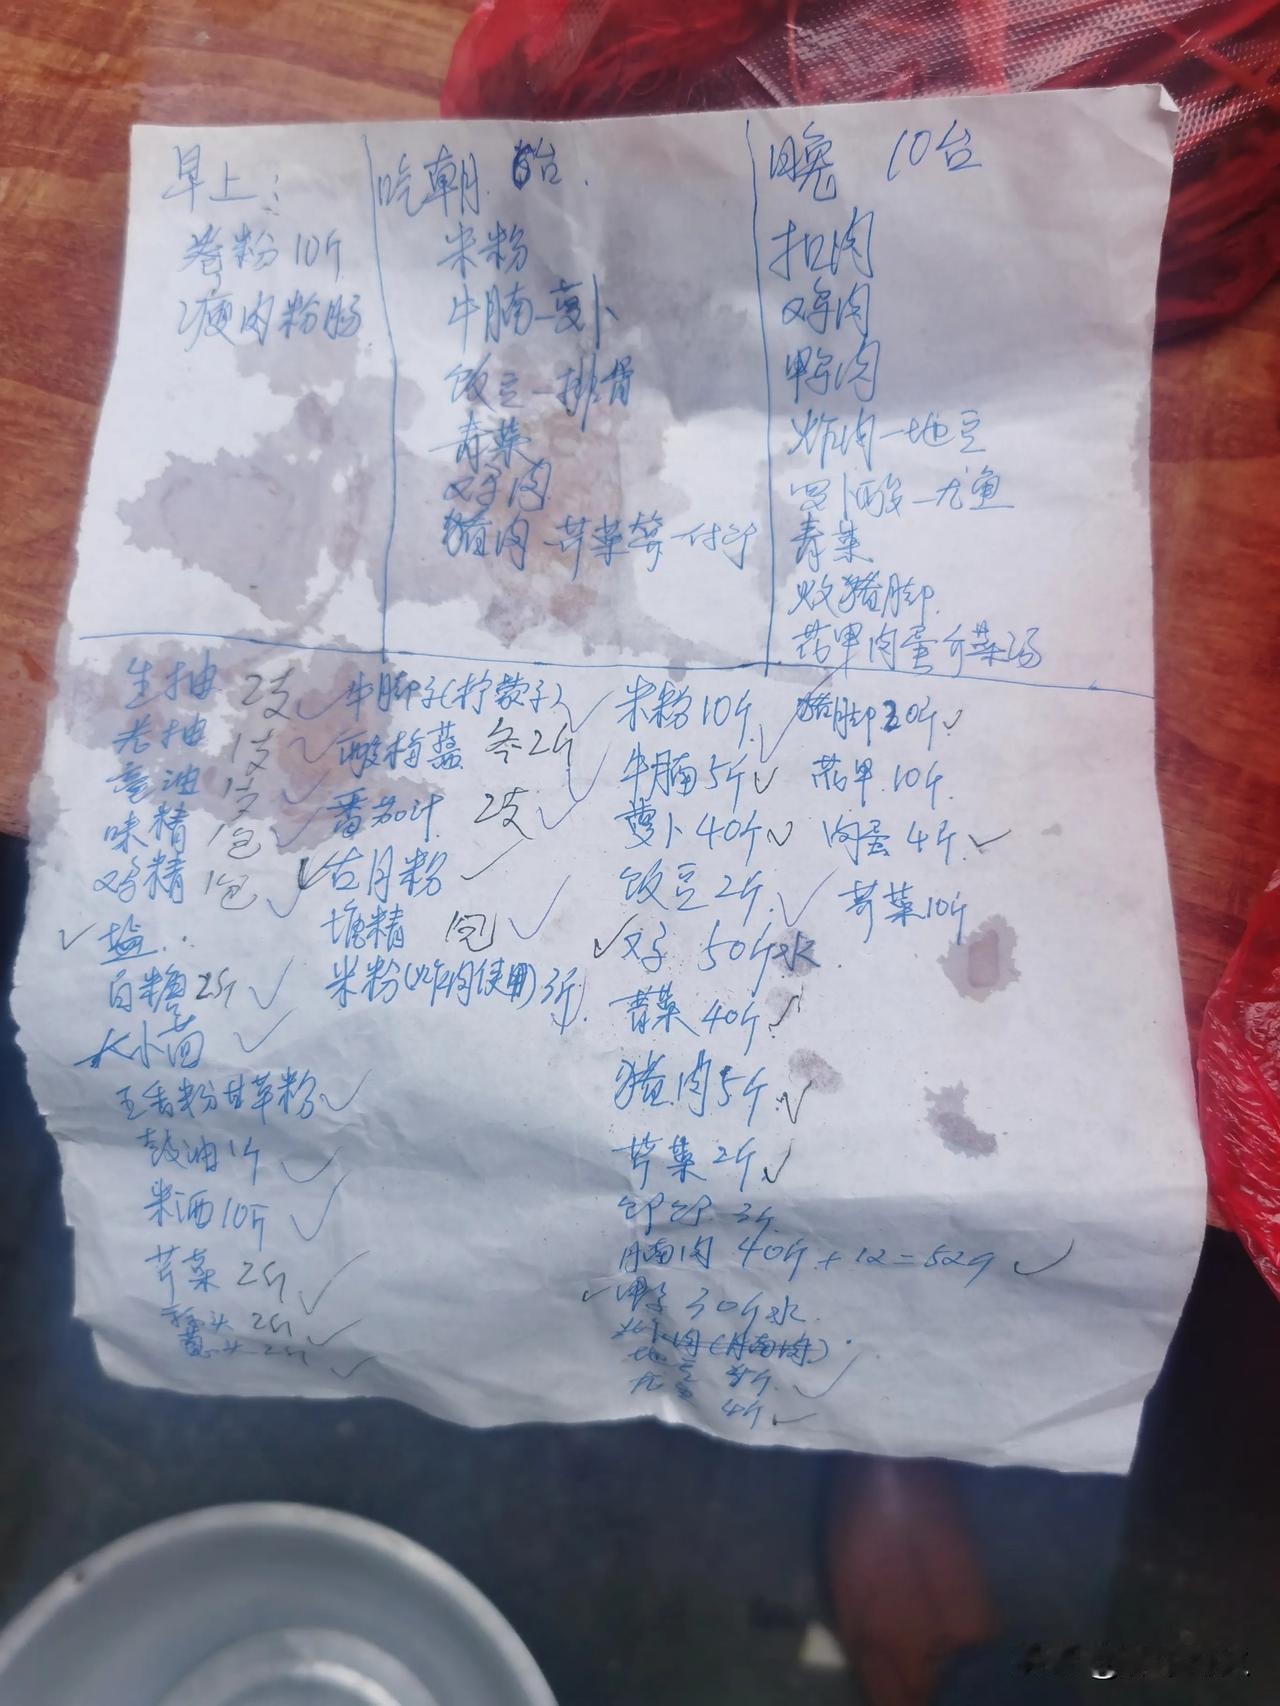 早上：
卷粉10斤
瘦肉粉肠
吃朝 台
米粉
牛腩—萝卜
饭豆—排骨
青菜
鸡肉
猪肉—芹菜
晚 10台
扣肉
鸡肉
鸭肉
炸肉—地豆
酸—尤鱼
青菜
猪脚
花甲肉蛋介菜汤
生抽 2支
老抽 1支
油 1支
味精 1包
鸡精 1包
盐
白糖 2斤
大小茴
五香粉甘草粉
豉油1斤
米酒10斤
芹菜 2斤
头 2斤
头 2斤
牛脚子(柠蒙子)
酸梅 各2斤
番茄汁 2支
古月粉
塘精 包
米粉(炸肉使用)3斤
米粉10斤
牛腩5斤
萝卜40斤
饭豆2斤
50斤水
青菜40斤
猪肉5斤
芹菜2斤
3斤
腩肉 40斤+12=52斤
30斤水
肉(腩肉)
地豆 斤
尤鱼 4斤
猪脚20斤
花甲10斤
肉蛋4斤
芥菜10斤